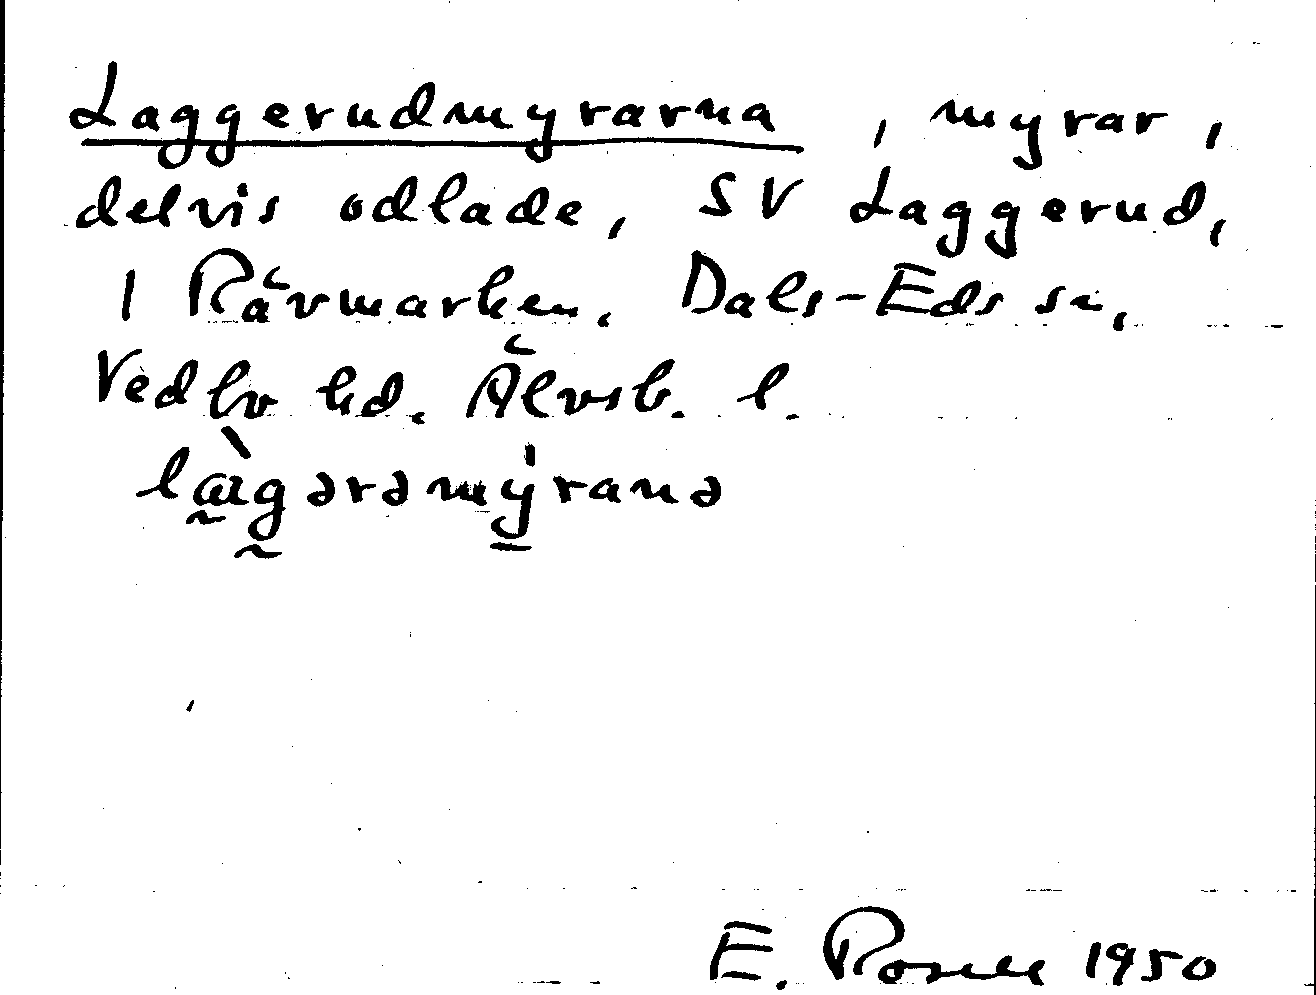 Laggerudmyrarna, myrar,
delvis odlade, SV Laggerud,
I Rävmarken. Dals-Eds sn,
Vedbo hd. Älvsb. l.
lɑ̀gərəmýranə
E. Rosell 1950